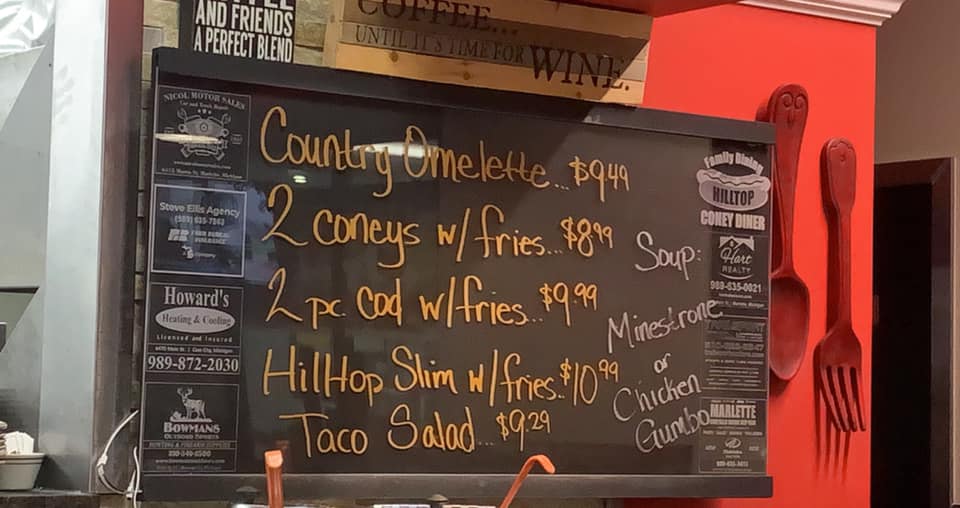 AND FRIENDS
A PERFECT BLEND
COFFEE...
UNTIL IT'S TIME FOR WINE.
NICOL MOTOR SALES
Car and Truck Repair
Steve Ellis Agency
(989) 635-7863
FARM BUREAU
INSURANCE
Howard's
Heating & Cooling
Licensed and Insured
989-872-2030
BOWMANS
OUTDOOR SPORTS
HUNTING & FIREARM SUPPLIES
Country Omelette... $9.49
2 coneys w/fries... $8.99
2 pc. cod w/fries... $9.99
HillTop Slim w/fries.. $10.99
Taco Salad... $9.29
Soup:
Minestrone
or
Chicken
Gumbo
Family Dining
HILLTOP
CONEY DINER
Hart
REALTY
989-635-0021
MARLETTE